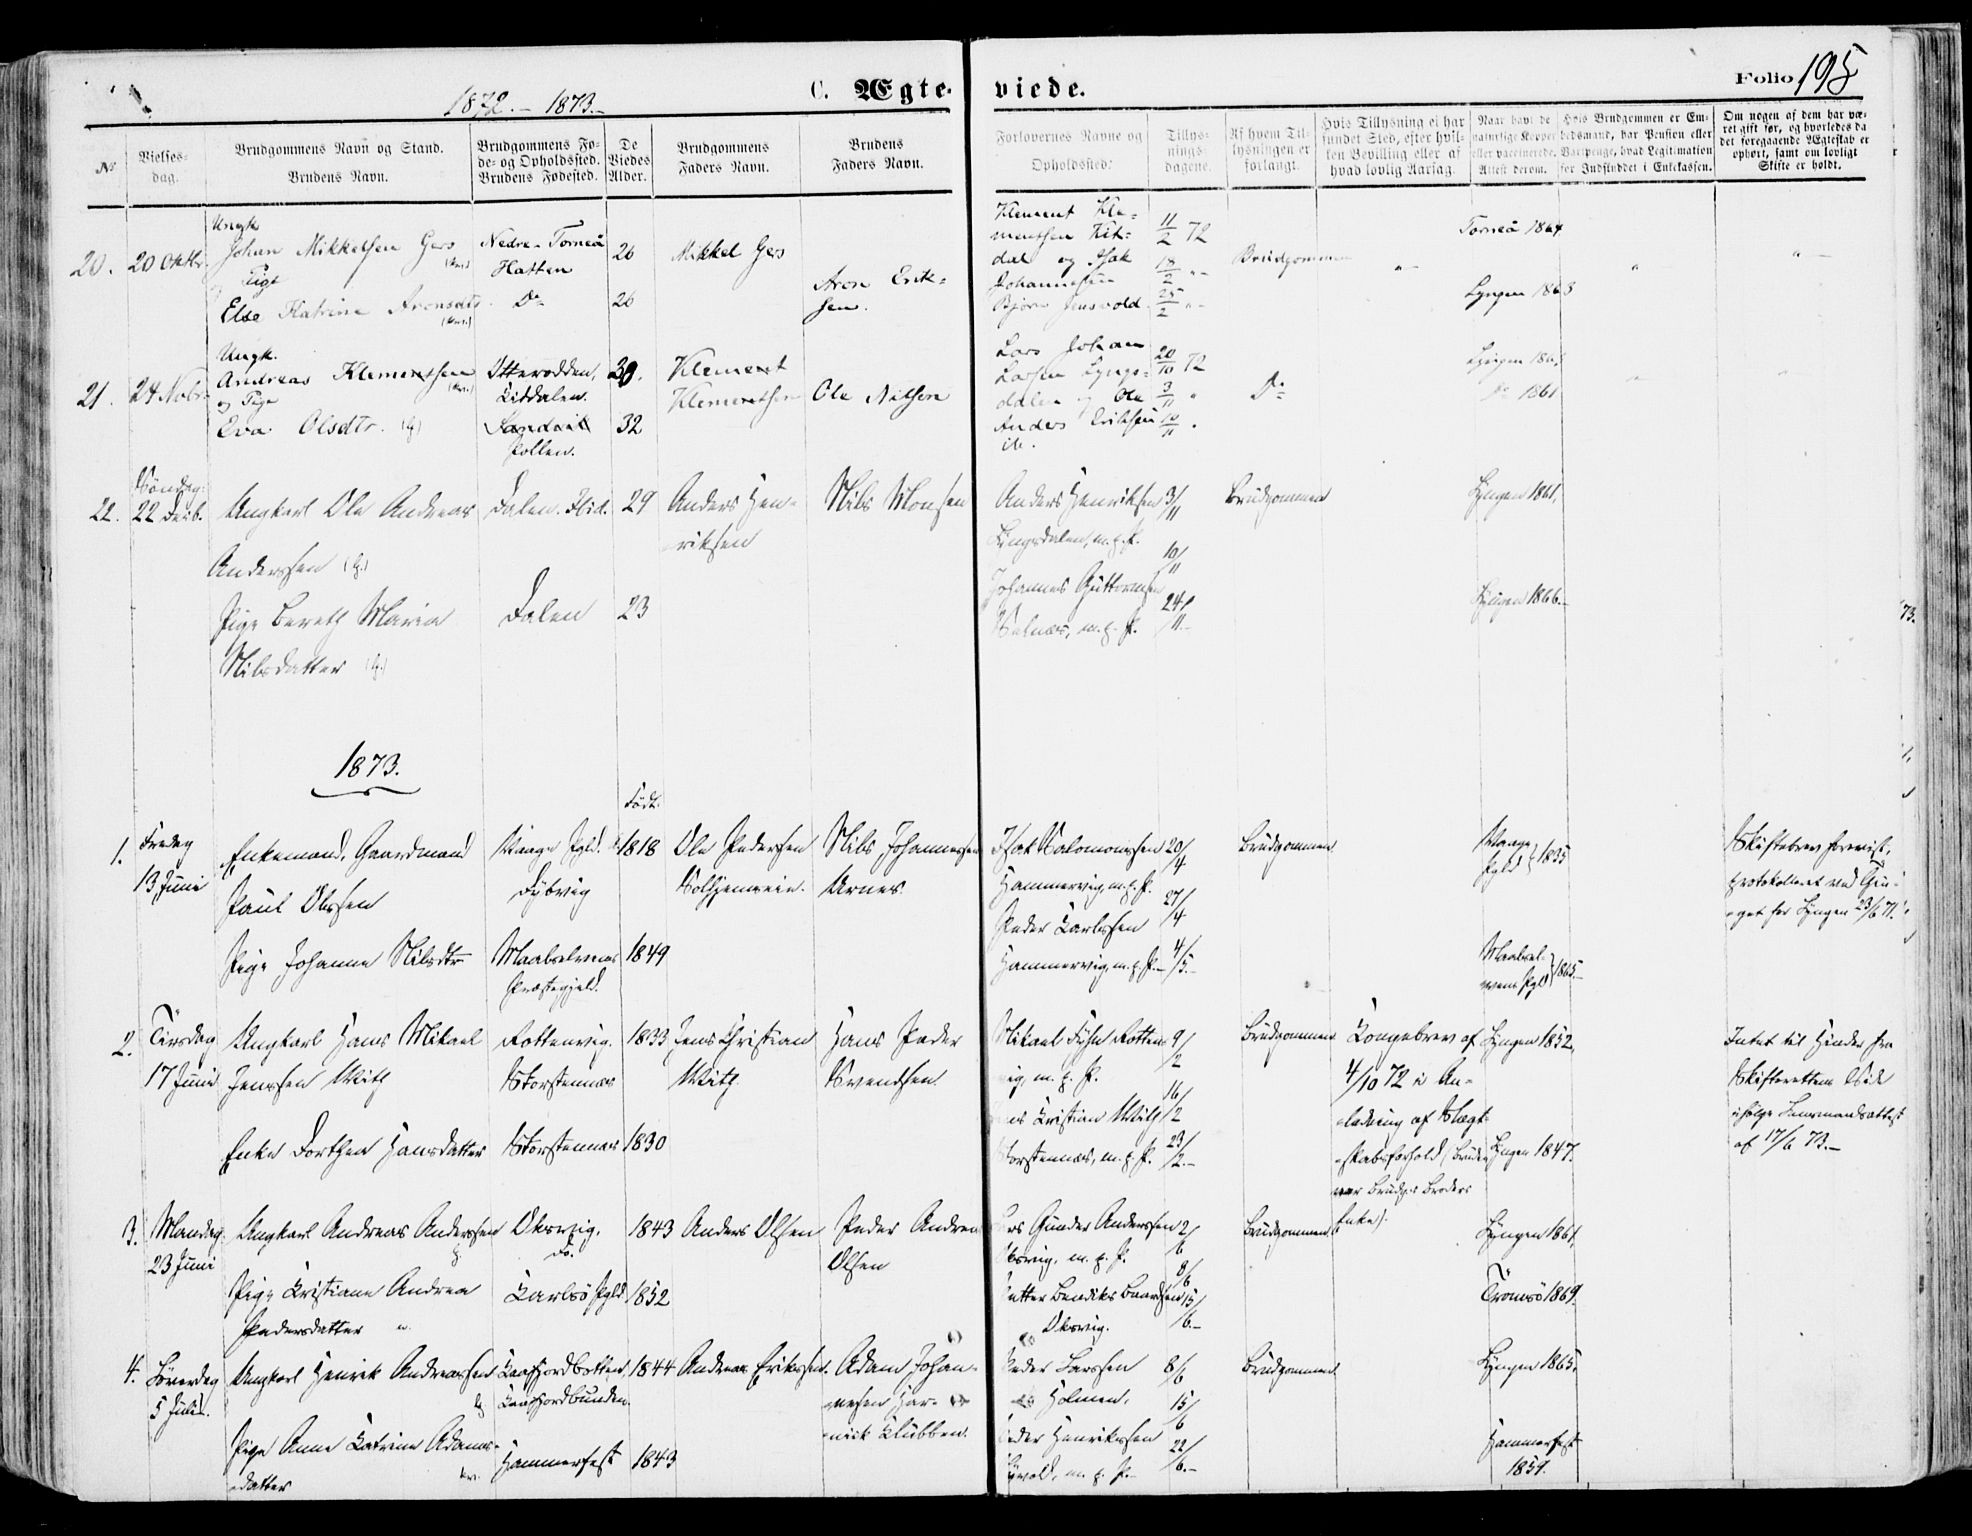 1872. – 1873. –
C. Ægteviede.
Folio 195
No
Vielses-
dag.
Brudgommens Navn og Stand.
Brudens Navn.
Brudgommens Fø-
de- og Opholdssted.
Brudens Fødested.
De
Viedes
Alder.
Brudgommens
Faders Navn.
Brudens
Faders Navn.
Forlovernes Navne og
Opholdssted.
Tillys-
nings-
dagene.
Af hvem Til-
lysningen er
forlangt.
Hvis Tillysning ei har
fundet Sted, efter hvil-
ken Bevilling eller af
hvad lovlig Aarsag.
Naar havt de
naturlige Kopper
eller vaccinerede.
Attest derom.
Hvis Brudgommen er En-
kedsmand, har Pension eller
Vartpenge, hvad Legitimation
for Indskuddet i Enkekassen.
Om nogen af dem har væ-
ret gift før, og hvorledes da
det foregaaende Ægteskab er
ophørt, samt om lovligt
Skifte er holdt.
20. 20 Oktbr.
Ungk.
Johan Mikkelsen Gers
(Kv.)
Pige
Else Katrine Aronsdtr.
(Kv.)
Nedre-Torneå
Hatten
Do
26
26
Mikkel Gers
Aron Erik-
sen.
Klement Kle-
mentsen Kit-
dal og Isak
Johannesen
Bjørn Jensvold
11/2 72
18/2 "
25/2 "
Brudgommen
"
Torneå 1864
Lyngen 1863
"
"
21. 24 Nvbr.
Ungk.
Andreas Klementsen
(Kv.)
og Pige
Eva Olsdtr. (l)
Otterodden,
Kitdalen.
Sandvik
Pollen.
30.
32
Klement
Klementsen
Ole Nilsen
Lars Johan
Larsen Lyngs-
dalen og Ole
Anders Eriksen
ib.
20/10 72
3/11 "
10/11 "
Do
Do 1861
22. Søndag
22 Decb.
Ungkarl Ole Andreas
Anderssen (l.)
Pige Bereth Maria
Nilsdatter (l.)
Dalen. Ibid.
Dalen
29
23
Anders Hen-
riksen
Nils Monsen
Anders Henriksen
Lyngsdalen, m. p. P.
Johannes Guttormsen
m. p. P.
3/11
10/11
24/11
Brudgommen
Lyngen 1861.
Lyngen 1866.-
1873.
Født.
1. Fredag
13 Juni
Enkemand, Gaardmand
Paul Olssen
Pige Johanne Nilsdtr
Vaage Pgld.
Dybvig
Maalselvens
Præstegjeld.
1818
1849
Ole Pedersen
Nils Johannessen
Isak Salomonsen
Hammervig, m. p. P.
Peder Karlssen
Hammervig, m. p. P.-
20/4
27/4
4/5.-
Brudgommen
Vaage
Pgld } 1835
Maalsel-
vens Pgld } 1865.-
Skiftebrev forevist,
protokolleret ved Thin-
get for Lyngen 23/6 71.
2. Tirsdag
17 Juni
Ungkarl Hans Mikael
Jenssen With
Enke Dorthea Hansdatter
Rottenvig.
Storstennæs
Storstennæs
1833
1830
Jens Christian
With
Hans Peder
Svendsen
Mikael Fyhn Rotten-
vig, m. p. P.
Kristian With
Storstennæs, m. p. P.
9/2
16/2
23/2.-
Brudgommen
Kongebrev af
4/10 72 i An-
ledning af Slægt-
skabsforhold (Bruden
var Brudg's Broders
Enke).
Lyngen 1852,
Lyngen 1847.
Intet til Hinder fra
Skifterettens Side
ifølge Lensmandsattest
af 17/6 73.–
3. Mandag
23 Juni
Ungkarl Andreas Anderssen
Pige Kristiane Andrea
Pedersdatter
Oksvig.
do.
Karlsø Pgld
1843
1852
Anders Olsen
Peder Andreas
Olsen
Lars Gunder Anderssen
Oksvig, m. p. P.
Petter Bendiks Baardsen
Oksvig.
2/6
8/6
15/6.-
Brudgommen
Lyngen 1861.
Tromsø 1869.
4. Løverdag
5 Juli.
Ungkarl Henrik Andreassen
Pige Anne Katrine Adams-
datter
kv.
Kaafjordbotten,
Kaafjordbunden.
Hammerfest
1844
1843
Andreas Erikssen
Adam Johan-
nesen Har-
nisk Klubben.
Peder Larssen
Holmen.
Peder Henrikssen
m. p. P.-
8/6
15/6
22/6.-
Brudgommen
Lyngen 1865,
Hammerfest
1859.